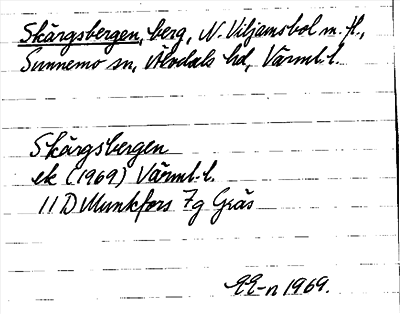 Skärgsbergen, berg, N. Viljamsbol m. fl.,
Sunnemo sn, Älvdals hd, Värml. l.
Skärgsbergen
ek (1969) Värml. l.
11 D Munkfors 7g Gräs
1969.